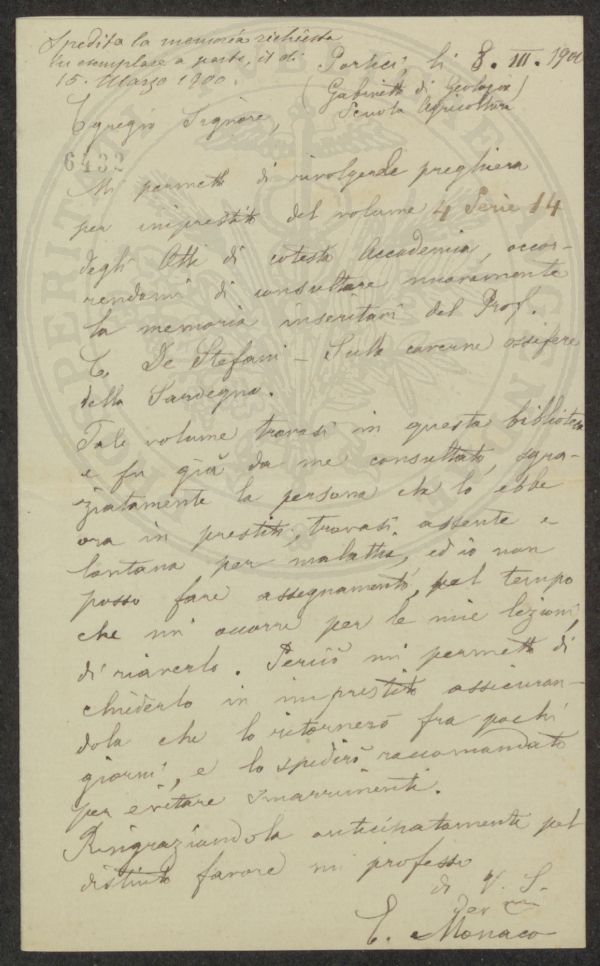 Spedita la memoria richiesta
in esemplare a parte, il dì
15. Marzo 1900.
Portici li 8. III. 1900
(Gabinetto di Geologia)
Scuola Agricoltura
Egregio Signore,
6432
Mi permetto di rivolgerle preghiera
per imprestito del volume 4 Serie 14
degli Atti di cotesta Accademia, occor-
rendomi di consultare nuovamente
la memoria inseritavi del Prof.
C. De Stefani - Sulle caverne ossifere
della Sardegna.
Tale volume trovasi in questa biblioteca
e fu già da me consultato, sgra-
ziatamente la persona che lo ebbe
ora in prestito, trovasi assente e
lontana per malattia, ed io non
posso fare assegnamento, pel tempo
che mi occorre per le mie lezioni,
di riaverlo. Perciò mi permetto di
chiederlo in imprestito assicuran-
dola che lo ritornerò fra pochi
giorni, e lo spedirò raccomandato
per evitare smarrimenti.
Ringraziandola anticipatamente pel
distinto favore mi professo
di V. S.
Dev mo
E. Monaco